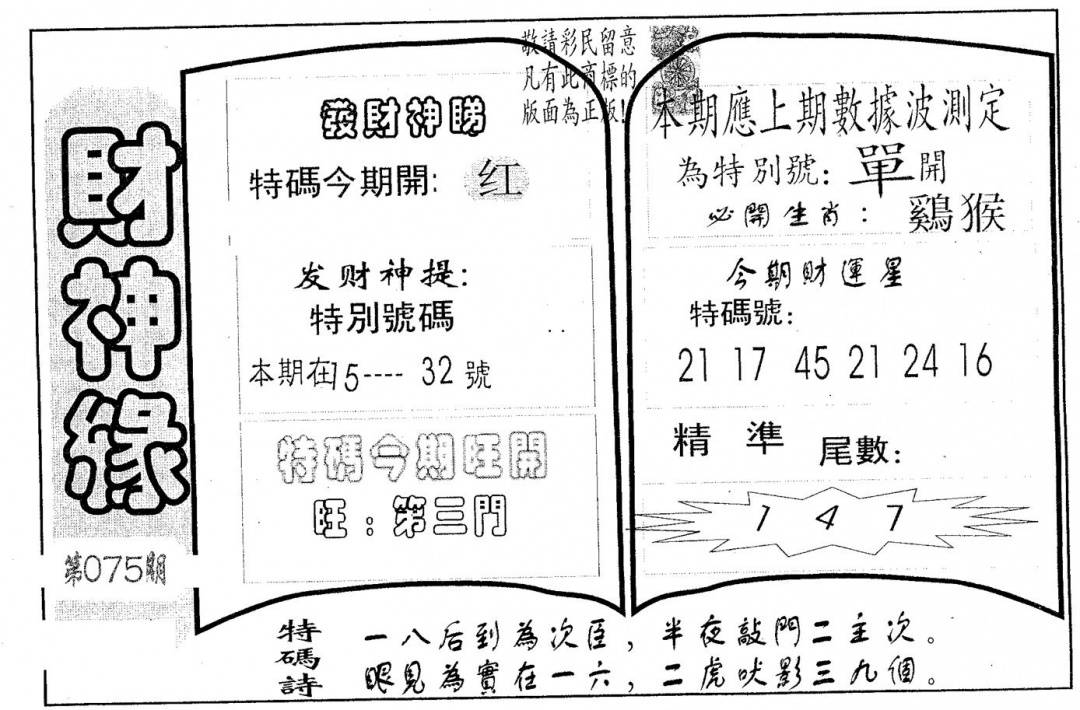 財神緣
第075期
敬請彩民留意
凡有此商標的
版面為正版!
發財神睇
特碼今期開: 红
发财神提:
特別號碼
本期在15---- 32 號
特碼今期旺開
旺:第三門
本期應上期數據波測定
為特別號: 單開
必開生肖: 鷄猴
今期財運星
特碼號:
21 17 45 21 24 16
精準 尾數:
1 4 7
特碼詩
一八后到為次臣,半夜敲門二主次。
眼見為實在一六,二虎吠影三九個。